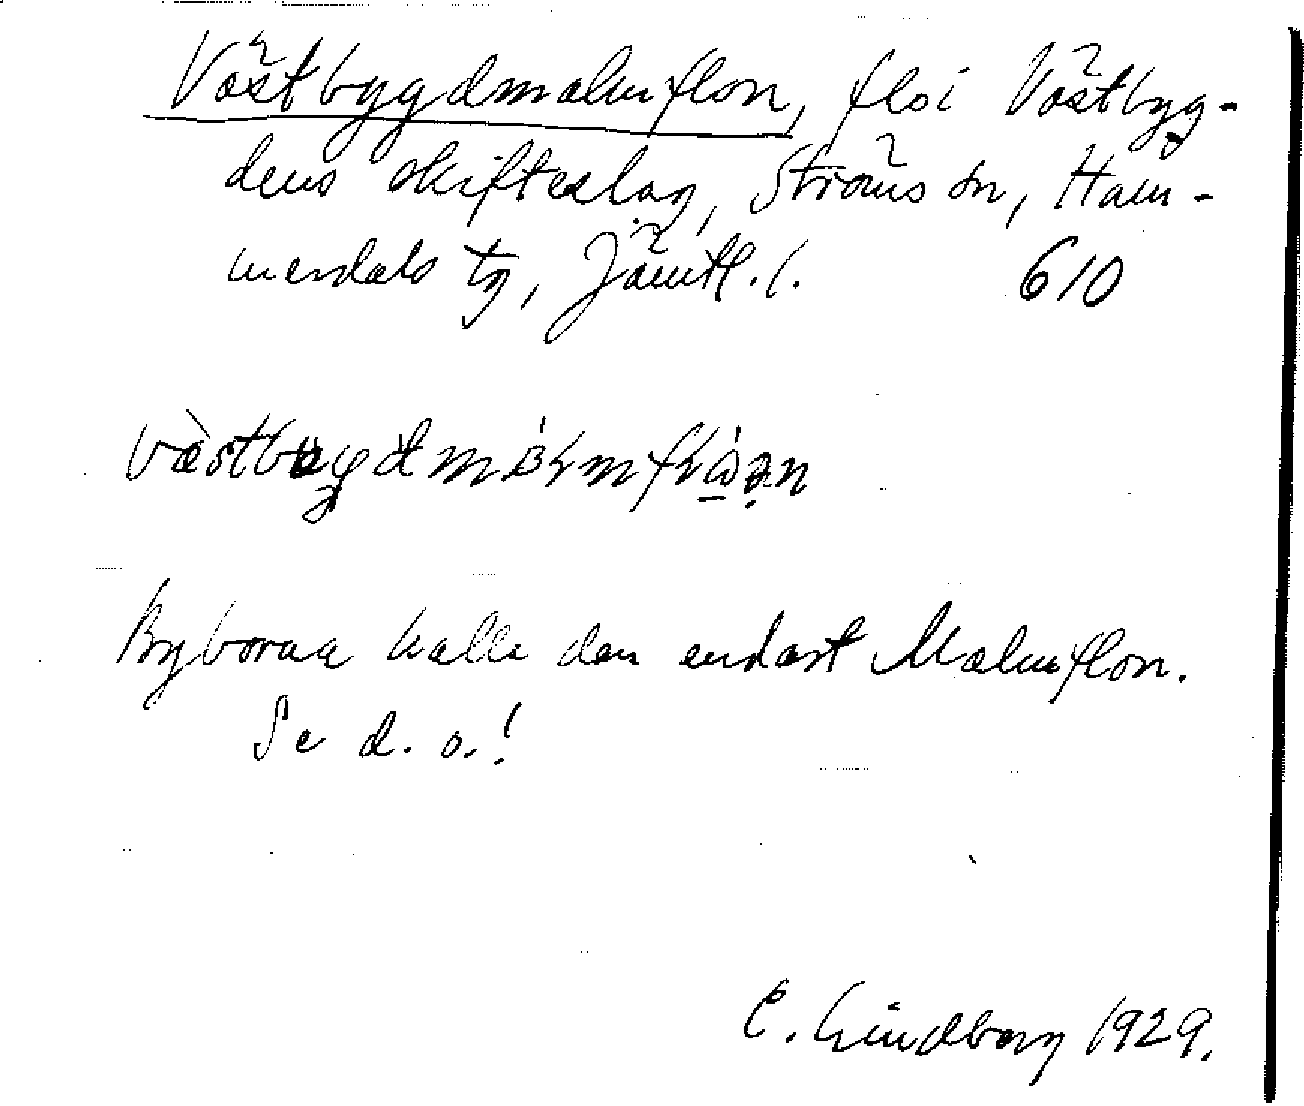 Västbygdmalmflon, flo i Västbyg-
dens skifteslag, Ströms sn, Ham-
merdals tg, Jämtl. l. 610
Byborna kalla den endast Malmflon.
Se d. o.!
E. Lindberg 1929.